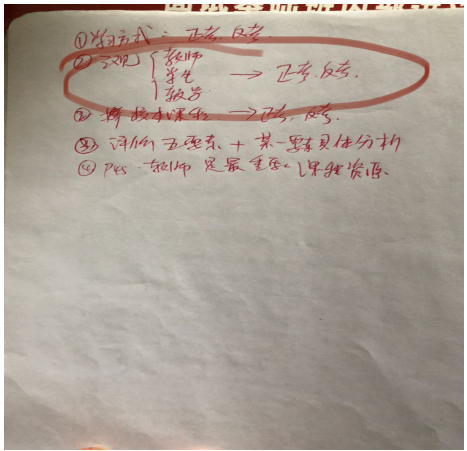 ①学习方式:正考,反考.
②三观{教师
学生 → 正考.反考.
教学
② 校本课程 → 正考,反考.
③ 评价五要素 + 某一要素具体分析
④ P45.教师是最重要课程资源.